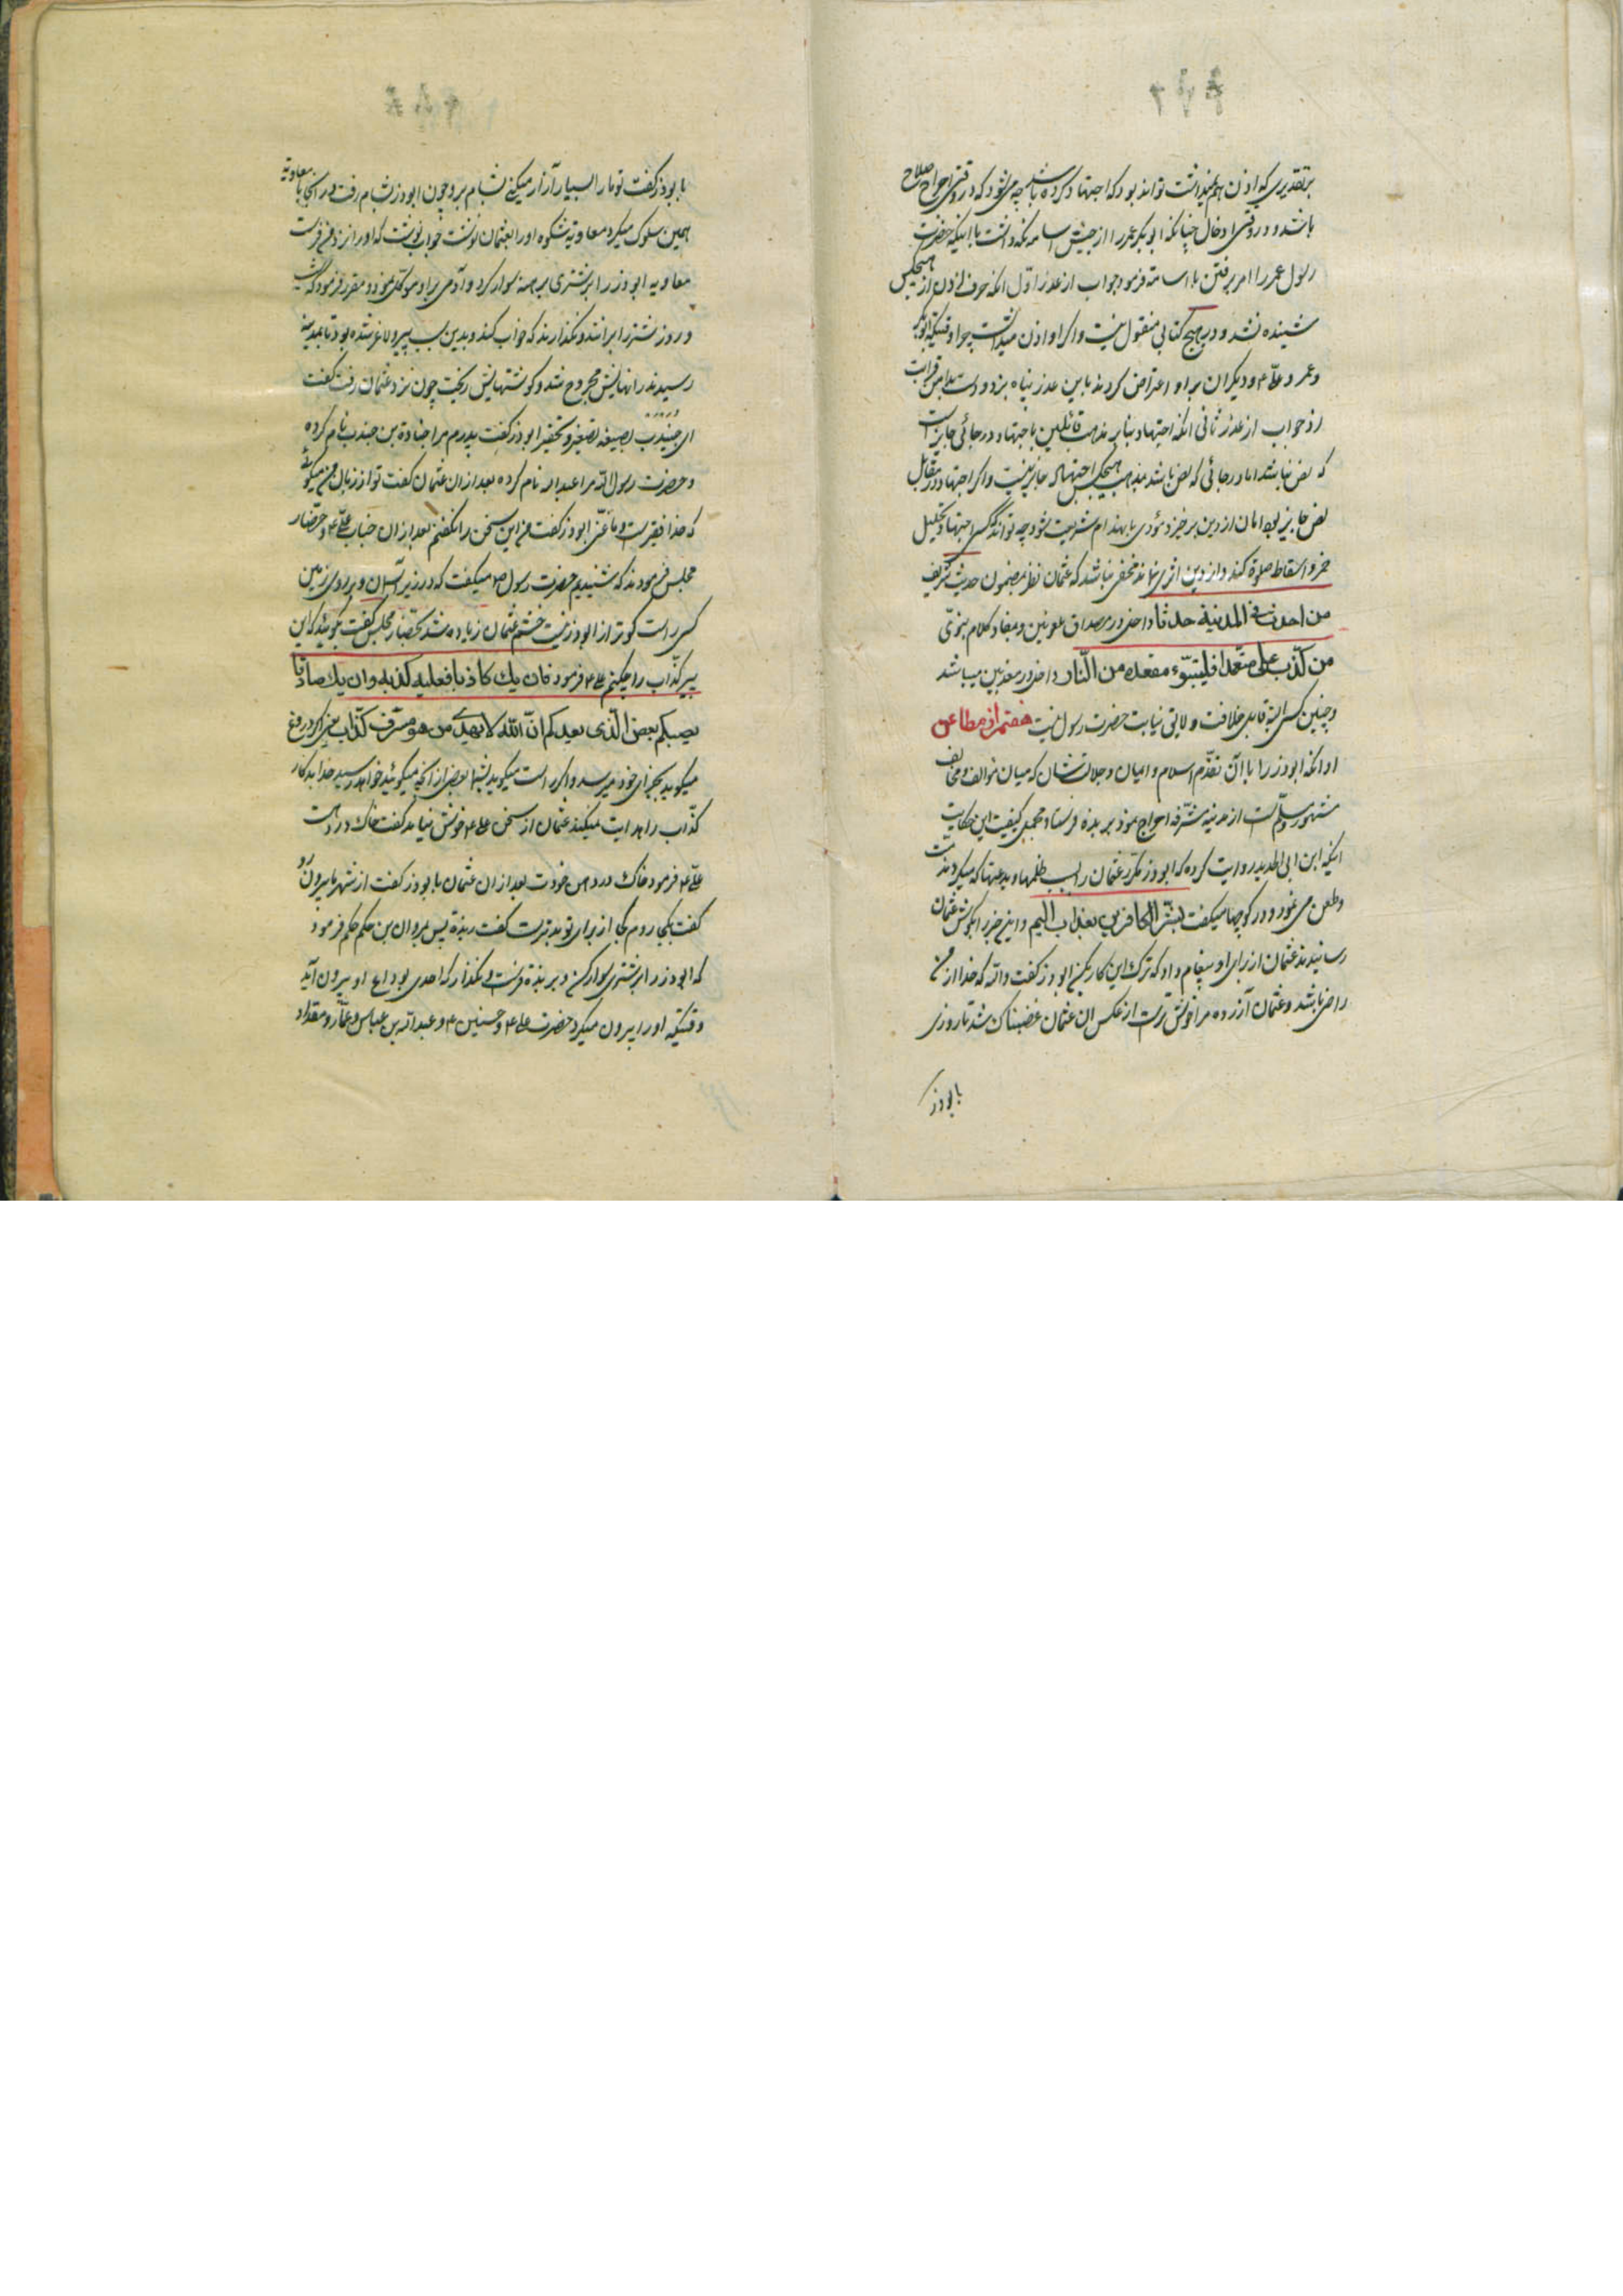 بر تقدیری که اذن هم نمیداشت تواند بود که اجتهاد کرده باشد چه میشود که در وقتی اخراج صلاح
باشد و در وقتی ادخال چنانکه ابوبکر عمر را از جیش اسامه نگه داشت با اینکه حضرت
رسول عمر را امر برفتن با اسامه فرمود جواب از عذر اول انکه حرف اذن از هیچکس
شنیده نشد و در هیچ کتابی منقول نیست و اگر او اذن میداشت چرا وقتیکه ابوبکر
و عمر و علی ع و دیگران بر او اعتراض کردند باین عذر پناه نبرد و دست بدامن قرابت
زد جواب از عذر ثانی انکه اجتهاد بنا بر مذهب قائلین باجتهاد در جائی جایز است
که نص نباشد اما در جائی که نص باشد بمذهب هیچکس اجتهاد جایز نیست و اگر اجتهاد در مقابل
نص جایز بود امان از دین برخیزد و مؤدی بانهدام شریعت شود چه تواند که کسی اجتهاد در تحلیل
خمر و اسقاط صلوة کند و از دین اثری نماند مخفی نباشد که عثمان نظر بمضمون حدیث شریف
من احدث فی المدینة حدثا داخل در مصداق ملعونین و بمفاد کلام نبوی
من کذب علی متعمدا فلیتبوّء مقعده من النار داخل در معذبین میباشد
و چنین کسی البته قابل خلافت و لایق نیابت حضرت رسول نیست هفتم از مطاعن
او انکه ابوذر را با آن تقدّم اسلام و ایمان و جلالت شان که میان مؤالف و مخالف
مشهور و مسلّم است از مدینه مشرّفه اخراج نمود بر بذه فرستاد مجمل کیفیت این حکایت
اینکه ابن ابی الحدید روایت کرده که ابوذر مکرر عثمان را بسبب ظلمها و بدعتها که میکرد مذمت
و طعن می نمود و در کوچها میگفت بشّر الکافرین بعذاب الیم و این خبر را بگوش عثمان
رسانیدند عثمان از برای او پیغام داد که ترک این کار بکن ابوذر گفت والله که خدا از من
راضی باشد و عثمان آزرده مرا خوشتر است از عکس ان عثمان غضبناک شد تا روزی
بابوذر
بابوذر گفت تو ما را بسیار آزار میکنی بشام برو چون ابوذر بشام رفت در انجا با معاویه
همین سلوک میکرد معاویه شکوه او را بعثمان نوشت جواب نوشت که او را نزد من فرست
معاویه ابوذر را بر شتری برهنه سوار کرد و آدمی بر او موکل نمود و مقرر فرمود که شب
و روز شتر را برانند و نگذارند که خواب کند و بدین سبب پیر و لاغر شده بود تا بمدینه
رسیدند رانهایش مجروح شد و گوشتهایش ریخت چون نزد عثمان رفت گفت
ای جنیدب بصیغه تصغیر و تحقیر ابوذر گفت پدرم مرا جنادة بن جندب نام کرده
و حضرت رسول الله مرا عبدالله نام کرده بعد از ان عثمان گفت تو از زبان من میگوئی
که خدا فقیر است و ما غنی ابوذر گفت من این سخن را نگفتم بعد از ان جناب علی ع و حضار
مجلس فرمودند که شنیدیم حضرت رسول ص میگفت که در زیر آسمان و بر روی زمین
کسی راست گوتر از ابوذر نیست خشم عثمان زیاده شد بحضار مجلس گفت بگوئید که این
پیر کذّاب را چکنم علی ع فرمود فان یک کاذبا فعلیه کذبه و ان یک صادقا
یصبکم بعض الذی یعدکم انّ الله لا یهدی من هو مسرف کذّاب یعنی اگر دروغ
میگوید بجزای خود میرسد و اگر راست میگوید بشما بعض از انچه میگوید خواهد رسید خدا بدکار
کذّاب را هدایت نمیکند عثمان از سخن علی ع خوشش نیامد گفت خاک در دهنت
علی ع فرمود خاک در دهن خودت بعد از ان عثمان بابوذر گفت از شهر ما بیرون رو
گفت بکجا روم کجا از برای تو بدتر است گفت ربذه پس بمروان بن حکم حکم فرمود
که ابوذر را بر شتری سوار کن و بر بذه فرست و نگذار که احدی بوداع او بیرون آید
وقتیکه او را بیرون میکرد حضرت علی ع و حسنین ع و عبدالله بن عباس و عمّار و مقداد